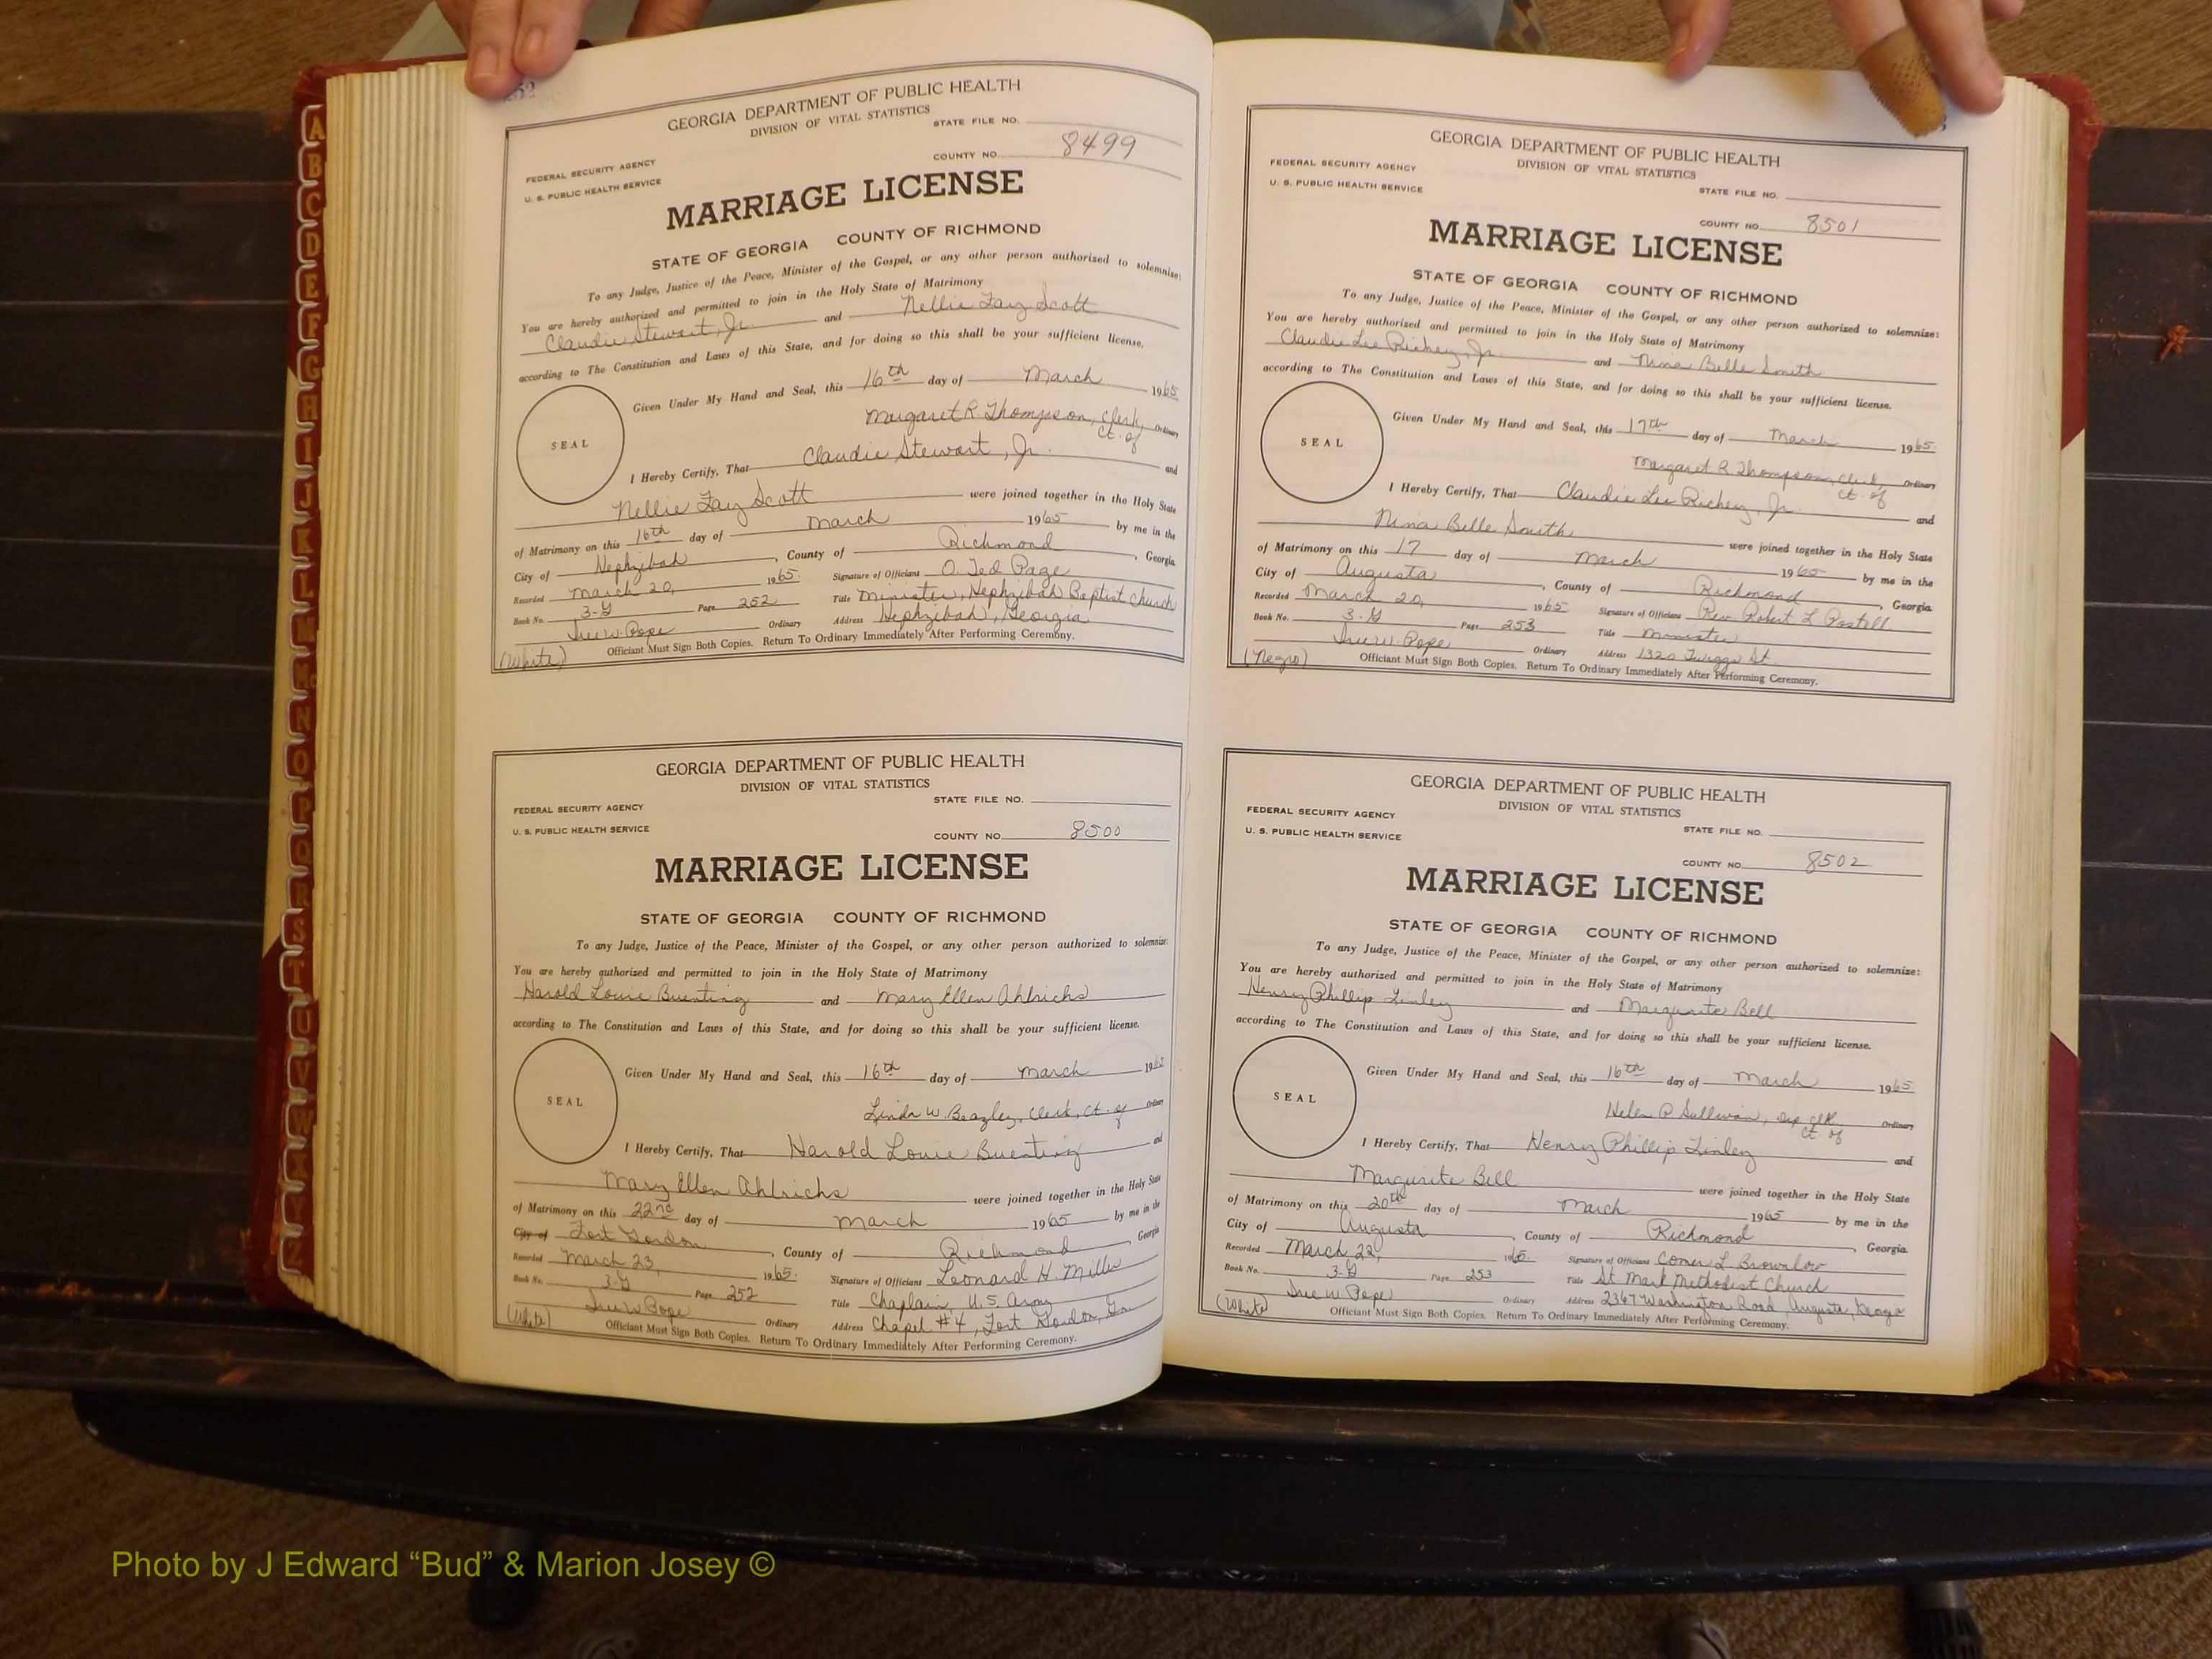 252
GEORGIA DEPARTMENT OF PUBLIC HEALTH
DIVISION OF VITAL STATISTICS
STATE FILE NO.
FEDERAL SECURITY AGENCY
U. S. PUBLIC HEALTH SERVICE
COUNTY NO. 8499
MARRIAGE LICENSE
STATE OF GEORGIA COUNTY OF RICHMOND
To any Judge, Justice of the Peace, Minister of the Gospel, or any other person authorized to solemnize:
You are hereby authorized and permitted to join in the Holy State of Matrimony
Claudie Stewart, Jr. and Nellie Fay Scott
according to The Constitution and Laws of this State, and for doing so this shall be your sufficient license.
Given Under My Hand and Seal, this 16th day of March 1965
Margaret R Thompson, Clerk, Ct. of Ordinary
SEAL
I Hereby Certify, That Claudie Stewart, Jr. and
Nellie Fay Scott were joined together in the Holy State
of Matrimony on this 16th day of March 1965 by me in the
City of Hephzibah, County of Richmond, Georgia
Recorded March 20, 1965. Signature of Officiant O. Ted Page
Book No. 3-Y Page 252 Title Minister, Hephzibah Baptist Church
Ordinary Address Hephzibah, Georgia
(White) Officiant Must Sign Both Copies. Return To Ordinary Immediately After Performing Ceremony.
GEORGIA DEPARTMENT OF PUBLIC HEALTH
DIVISION OF VITAL STATISTICS
STATE FILE NO.
FEDERAL SECURITY AGENCY
U. S. PUBLIC HEALTH SERVICE
COUNTY NO. 8500
MARRIAGE LICENSE
STATE OF GEORGIA COUNTY OF RICHMOND
To any Judge, Justice of the Peace, Minister of the Gospel, or any other person authorized to solemnize:
You are hereby authorized and permitted to join in the Holy State of Matrimony
Harold Louie Buenting and Mary Ellen Ahlrichs
according to The Constitution and Laws of this State, and for doing so this shall be your sufficient license.
Given Under My Hand and Seal, this 16th day of March 1965
Linda W. Beazley, Clerk, Ct. of Ordinary
SEAL
I Hereby Certify, That Harold Louie Buenting and
Mary Ellen Ahlrichs were joined together in the Holy State
of Matrimony on this 22nd day of March 1965 by me in the
City of Fort Gordon, County of Richmond Georgia
Recorded March 23, 1965. Signature of Officiant Leonard H. Miller
Book No. 3-Y Page 252 Title Chaplain, U.S. Army
Ordinary Address Chapel #4, Fort Gordon, Ga
(White) Officiant Must Sign Both Copies. Return To Ordinary Immediately After Performing Ceremony.
GEORGIA DEPARTMENT OF PUBLIC HEALTH
DIVISION OF VITAL STATISTICS
FEDERAL SECURITY AGENCY
U. S. PUBLIC HEALTH SERVICE
STATE FILE NO.
COUNTY NO. 8501
MARRIAGE LICENSE
STATE OF GEORGIA COUNTY OF RICHMOND
To any Judge, Justice of the Peace, Minister of the Gospel, or any other person authorized to solemnize:
You are hereby authorized and permitted to join in the Holy State of Matrimony
Claudie Lee Richey, Jr. and Nina Belle Smith
according to The Constitution and Laws of this State, and for doing so this shall be your sufficient license.
Given Under My Hand and Seal, this 17th day of March 1965.
Margaret R Thompson, Clerk, Ct. of Ordinary
SEAL
I Hereby Certify, That Claudie Lee Richey, Jr. and
Nina Belle Smith were joined together in the Holy State
of Matrimony on this 17 day of March 1965 by me in the
City of Augusta, County of Richmond, Georgia
Recorded March 20, 1965 Signature of Officiant Rev Robert L Postell
Book No. 3-Y Page 253 Title Minister
Ordinary Address 1320 Twiggs St.
(Negro) Officiant Must Sign Both Copies. Return To Ordinary Immediately After Performing Ceremony.
GEORGIA DEPARTMENT OF PUBLIC HEALTH
DIVISION OF VITAL STATISTICS
FEDERAL SECURITY AGENCY
U. S. PUBLIC HEALTH SERVICE
STATE FILE NO.
COUNTY NO. 8502
MARRIAGE LICENSE
STATE OF GEORGIA COUNTY OF RICHMOND
To any Judge, Justice of the Peace, Minister of the Gospel, or any other person authorized to solemnize:
You are hereby authorized and permitted to join in the Holy State of Matrimony
Henry Phillip Linley and Margurite Bell
according to The Constitution and Laws of this State, and for doing so this shall be your sufficient license.
Given Under My Hand and Seal, this 16th day of March 1965.
Helen P Sullivan, Dep. Clk. Ct. of Ordinary
SEAL
I Hereby Certify, That Henry Phillip Linley and
Margurite Bell were joined together in the Holy State
of Matrimony on this 20th day of March 1965 by me in the
City of Augusta, County of Richmond, Georgia
Recorded March 22, 1965. Signature of Officiant Comer L. Brownlow
Book No. 3-Y Page 253 Title St. Mark Methodist Church
Ordinary Address 2367 Washington Road, Augusta, Georgia
(White) Officiant Must Sign Both Copies. Return To Ordinary Immediately After Performing Ceremony.
A
B
C
D
E
F
G
H
I
J
K
L
M
Mc
N
O
P
Q
R
S
T
U
V
W
X
Y
Z
Photo by J Edward “Bud” & Marion Josey ©